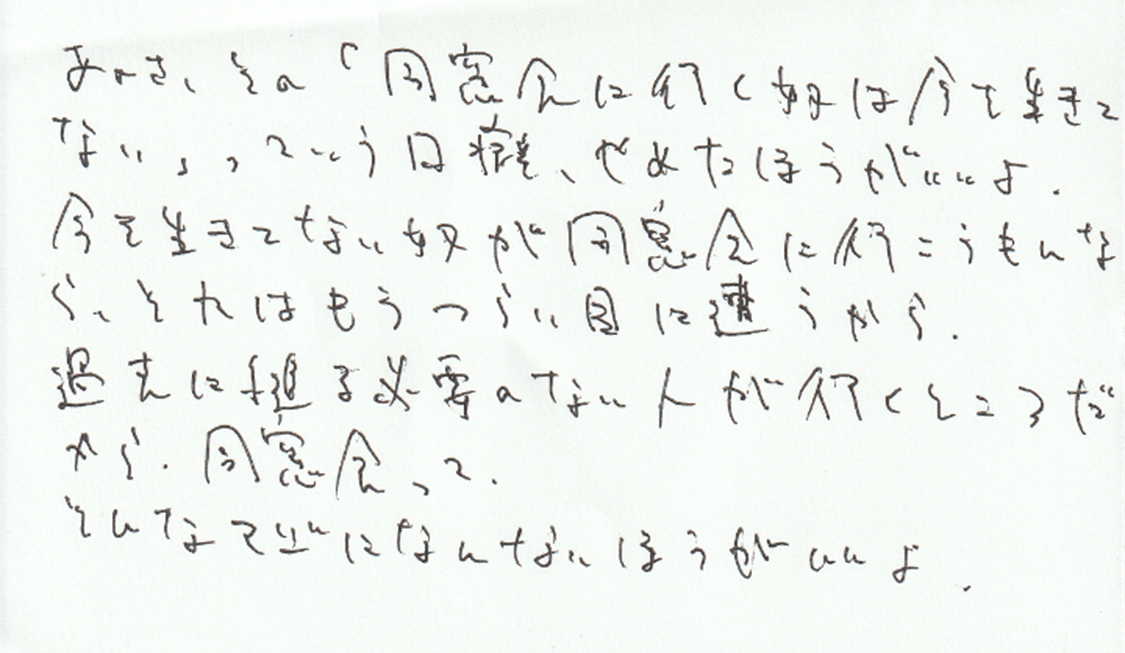 あのさ、その「同窓会に行く奴は今を生きて
ない」っていう口癖、やめたほうがいいよ.
今を生きてない奴が同窓会に行こうもんな
ら、それはもうつらい目に遭うから.
過去に縋る必要のない人が行くところだ
から.同窓会って.
そんなでにならないほうがいいよ.